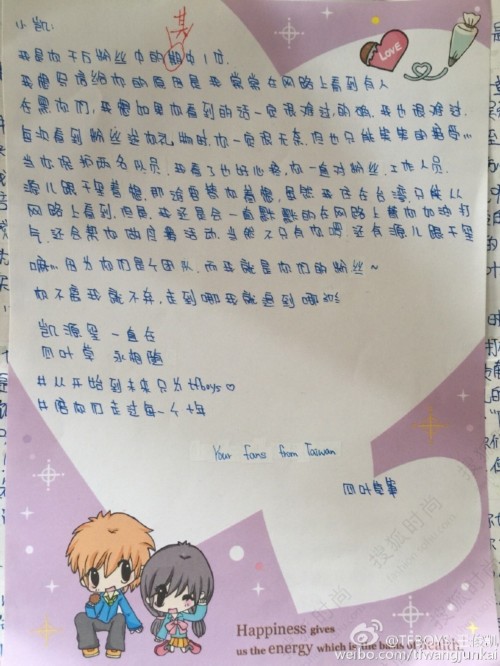 小凯:
某
我是你千万粉丝中的期中1位.
我想只信给你的原因是我常常在网路上看到有人
在黑你们,我想如果你看到的话一定很难过,的确,我也很难过,
每次看到粉丝送你礼物时,你一定很无奈,但也只能笑笑的
当你保护两名队员,我看了也好心疼,你一直对粉丝、工作人员、
源儿跟千玺着想,那谁会替你着想,虽然我住在台湾,只能从
网路上看到,但是,我还是会一直默默的在网路上替你加油打
气,还会帮你做应援活动,当然不只有你喔!还有源儿跟千玺
嘛…因为你们是个团队,而我就是你们的粉丝~
你不离我就不弃,走到哪我就追到哪
凯源玺 一直在
四叶草 永相随
#从开始到未来只为tfboys♡
#陪你们走过每一个十年
Your fans from Taiwan
四叶草筆
LOVE
Happiness gives
us the energy which is the basis of health.
搜狐时尚
@TFBOYS-王俊凯
weibo.com/tfwangjunkai